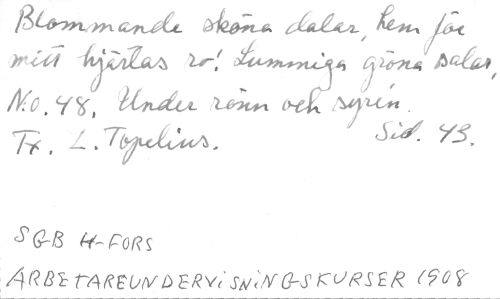 Blommande sköna dalar, hem för
mitt hjärtas ro! Lummiga gröna salar,
N.o. 48, Under rönn och syrén.
Tx. L. Topelius. Sid. 43.
SGB H-FORS
ARBETAREUNDERVISNINGSKURSER 1908